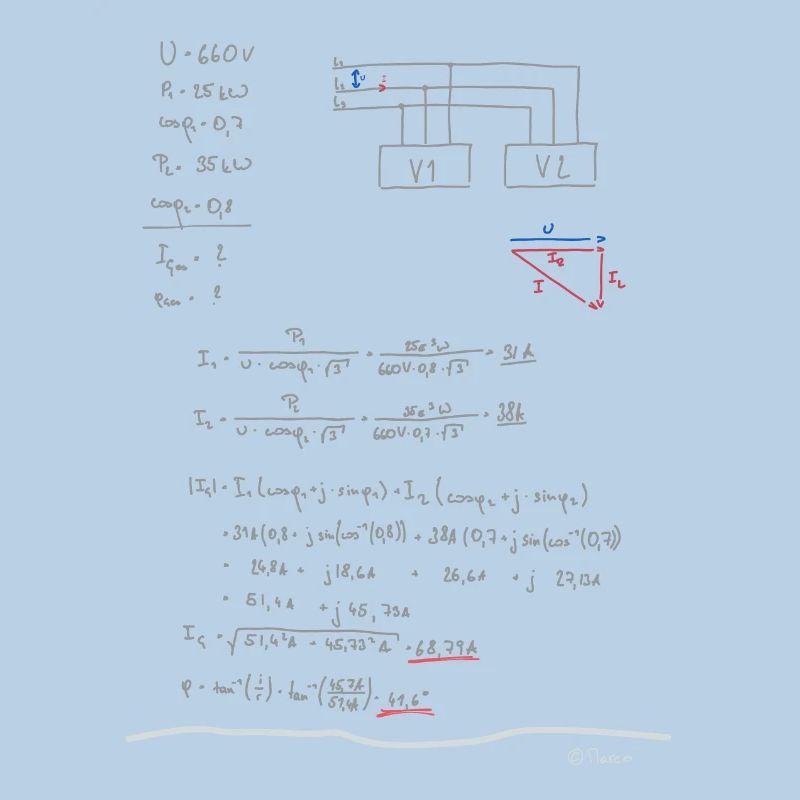 U = 660V
P₁ = 25 kW
cosφ₁ = 0,7
P₂ = 35 kW
cosφ₂ = 0,8
I_ges = ?
φ_ges = ?
L₁
L₂
L₃
U
I
V1
V2
U
I_R
I
I_L
I₁ = P₁ / (U · cosφ₁ · √3) = 25E³W / (660V · 0,8 · √3) = 31A
I₂ = P₂ / (U · cosφ₂ · √3) = 35E³W / (660V · 0,7 · √3) = 38A
|I_G| = I₁ (cosφ₁ + j · sinφ₁) + I₂ (cosφ₂ + j · sinφ₂)
= 31A (0,8 + j sin(cos⁻¹(0,8)) + 38A (0,7 + j sin(cos⁻¹(0,7))
= 24,8A + j 18,6A + 26,6A + j 27,13A
= 51,4A + j 45,73A
I_G = √(51,4²A + 45,73²A) = 68,79A
φ = tan⁻¹(i/r) = tan⁻¹(45,7A/51,4A) = 41,6°
© Marco